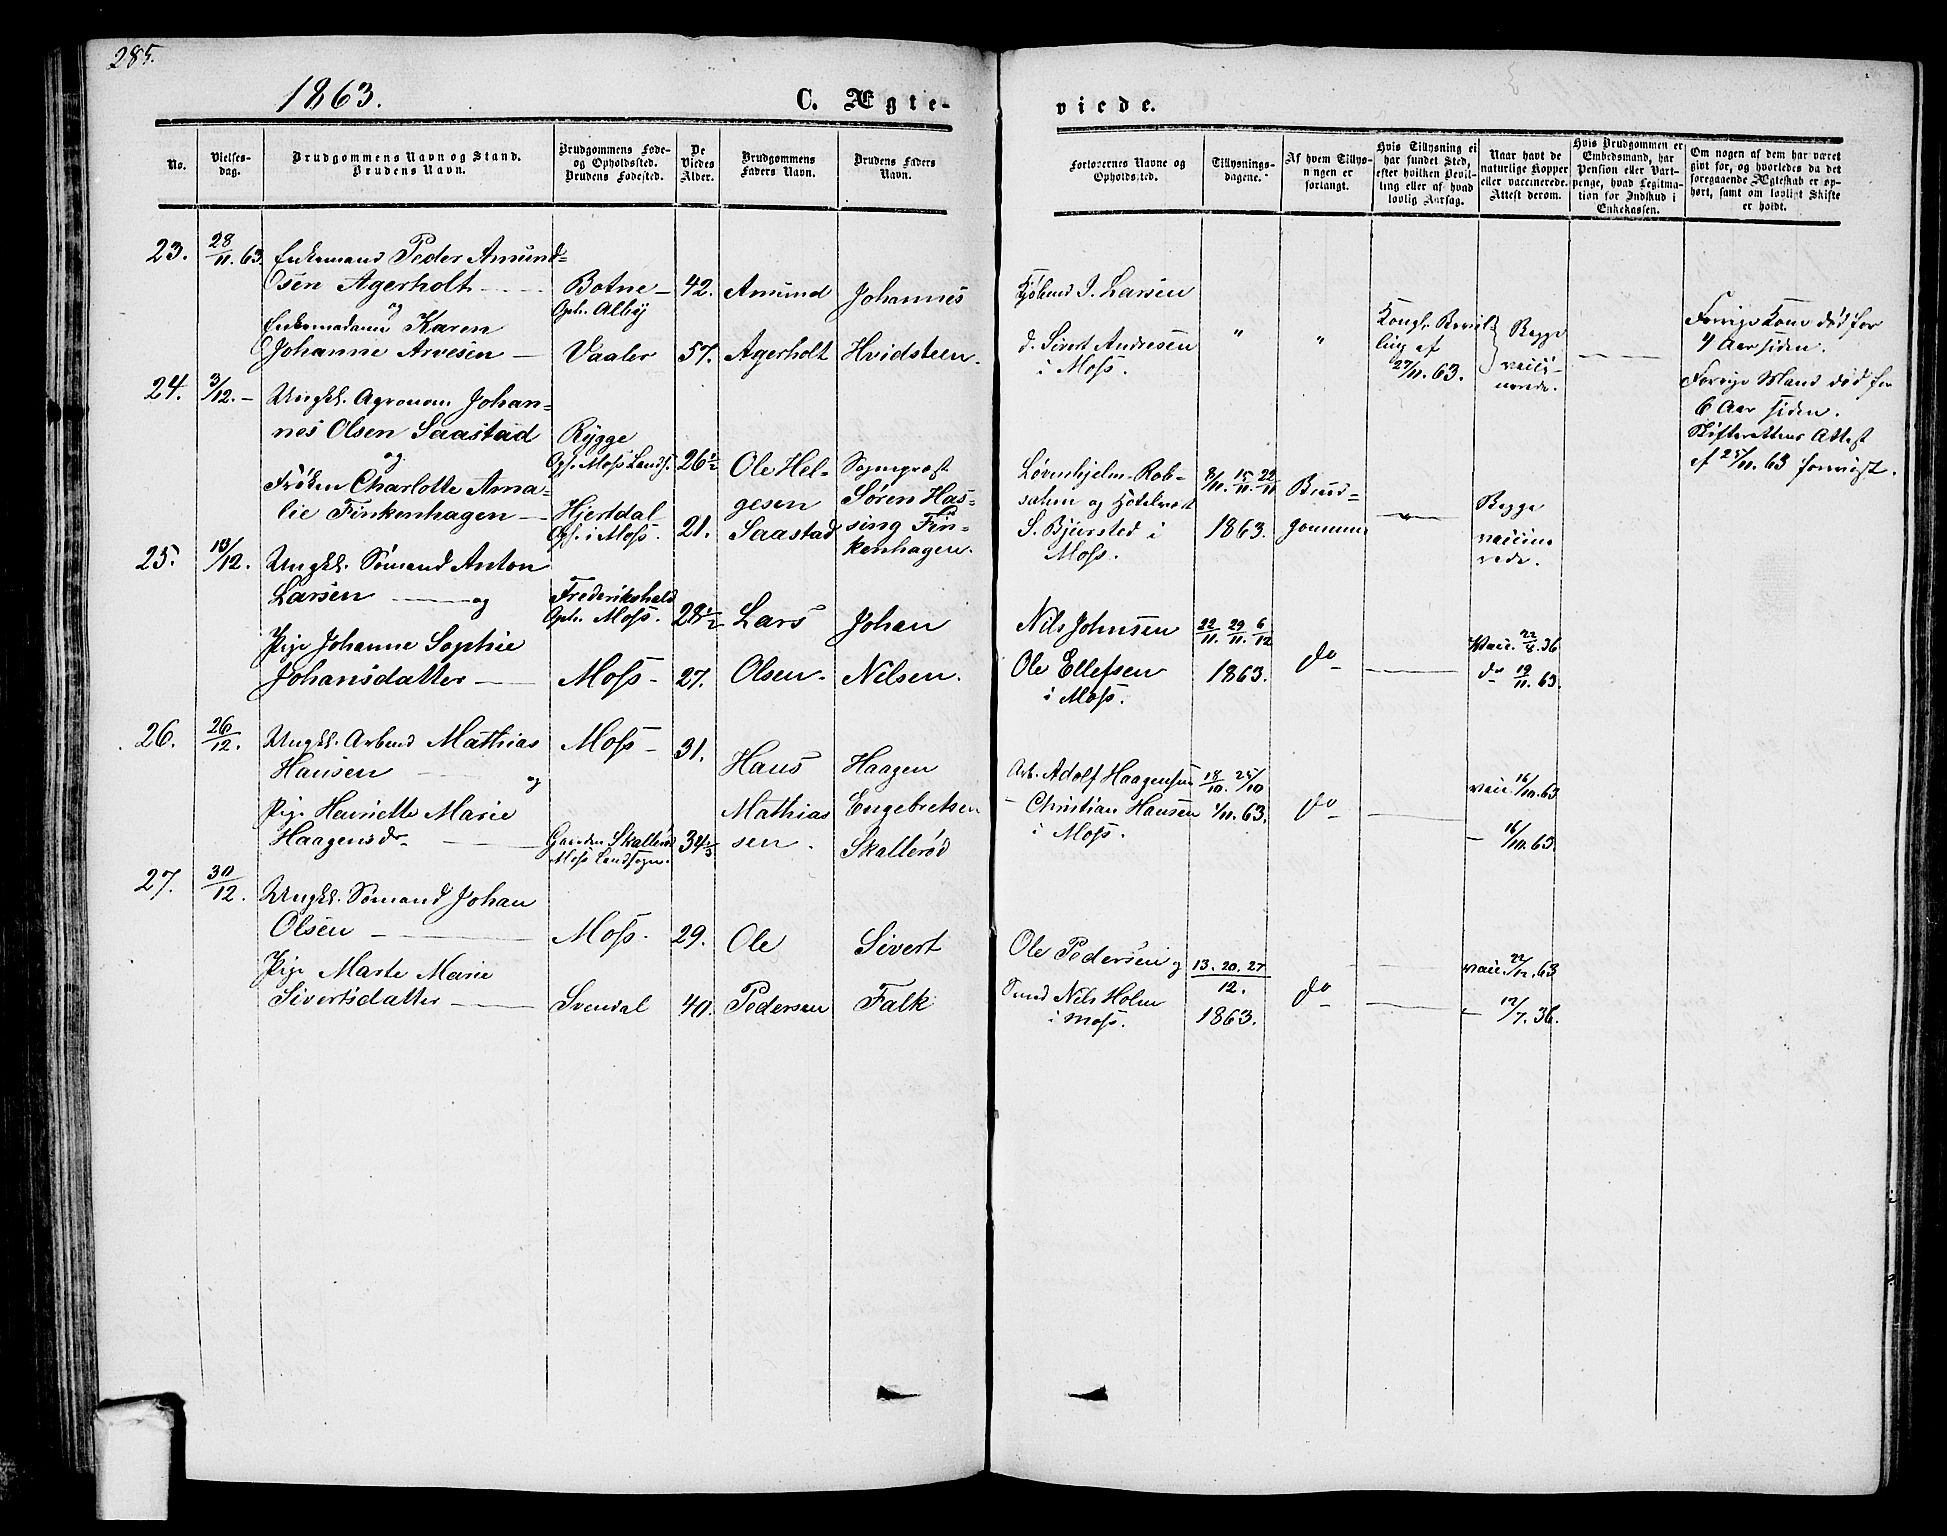 285.
1863.
C. Ægteviede.
No.
Vielses-
dag.
Brudgommens Navn og Stand.
Brudens Navn.
Brudgommens Føde-
og Opholdssted.
Brudens Fødested.
De
Viedes
Alder.
Brudgommens
Faders Navn.
Brudens Faders
Navn.
Forlovernes Navne og
Opholdssted.
Tillysnings-
dagene.
Af hvem Tillys-
ningen er
forlangt.
Hvis Tillysning ei
har fundet Sted,
efter hvilken Bevil-
ling eller af hvad
lovlig Aarsag.
Naar havt de
naturlige Kopper
eller vaccinerede.
Attest derom.
Hvis Brudgommen er
Embedsmand, har
Pension eller Vart-
penge, hvad Legitima-
tion for Indskud i
Enkekassen.
Om nogen af dem har været
givt før, og hvorledes da det
foregaaende Ægteskab er op-
hørt, samt om lovligt Skifte
er holdt.
23.
28/11.63.
Enkemand Peder Amund-
sen Agerholt
og
Enkemadame Karen
Johanne Arvesen
Botne
Oph. Alby
Vaaler
42.
57.
Amund
Agerholt
Johannes
Hvidsteen.
Kjøbmd J. Larsen
d. Sivert Andresen
i Moss.
"
"
Kongl. Bevil-
ling af
27/11.63.
Begge
vacci-
nerede.
Forrige Kone død for
4 Aar siden.
Forrige Mand død for
6 Aar siden.
Skifterettens Attest
af 25/11.63 forevist.
24.
3/12.
Ungk. Agronom Johan-
nes Olsen Saastad
og
Frøken Charlotte Ama-
lie Finkenhagen
Rygge
Oph. Moss Lands.
Hjertdal
Oph. i Moss.
26 1/2
21.
Ole Hel-
gesen
Saastad
Sogneprest
Søren Has-
sing Fin-
kenhagen.
Løvenhjelm Rob-
sahm og Hotelvert
S. Bjersted i
Moss.
8/11. 15/11. 22/11
1863.
Brud-
gommen
"
Begge
vaccine-
rede.
25.
13/12.
Ungk. Sømand Anton
Larsen og
Pige Johanne Sophie
Johansdatter
Frederikshald
Oph. Moss.
Moss
28 1/2
27.
Lars
Olsen.
Johan
Nelsen.
Nils Johnsen
Ole Ellefsen
i Moss.
22/11. 29/11. 6/12
1863.
do
Vacc. 22/8.36
do 19/11.63.
26.
26/12.
Ungk. Arbmd Mathias
Hansen
og
Pige Henriette Marie
Haagensdr
Moss
Gaarden Skallerød
Moss Landsogn.
31.
34 1/3
Hans
Mathias
sen.
Haagen
Engebretsen
Skallerød
Arb. Adolf Haagensen
Christian Hansen
i Moss.
18/10 25/10
1/11.63.
do
vacc. 16/10.63
16/10.63.
27.
30/12.
Ungk. Sømand Johan
Olsen
Pige Marte Marie
Sivertsdatter
Moss.
Svendal
29.
40.
Ole
Pedersen
Sivert
Falk
Ole Pedersen og
Nils Holm
i Moss.
13. 20. 27
12.
1863.
do
vacc. 22/12.63
12/7.36.